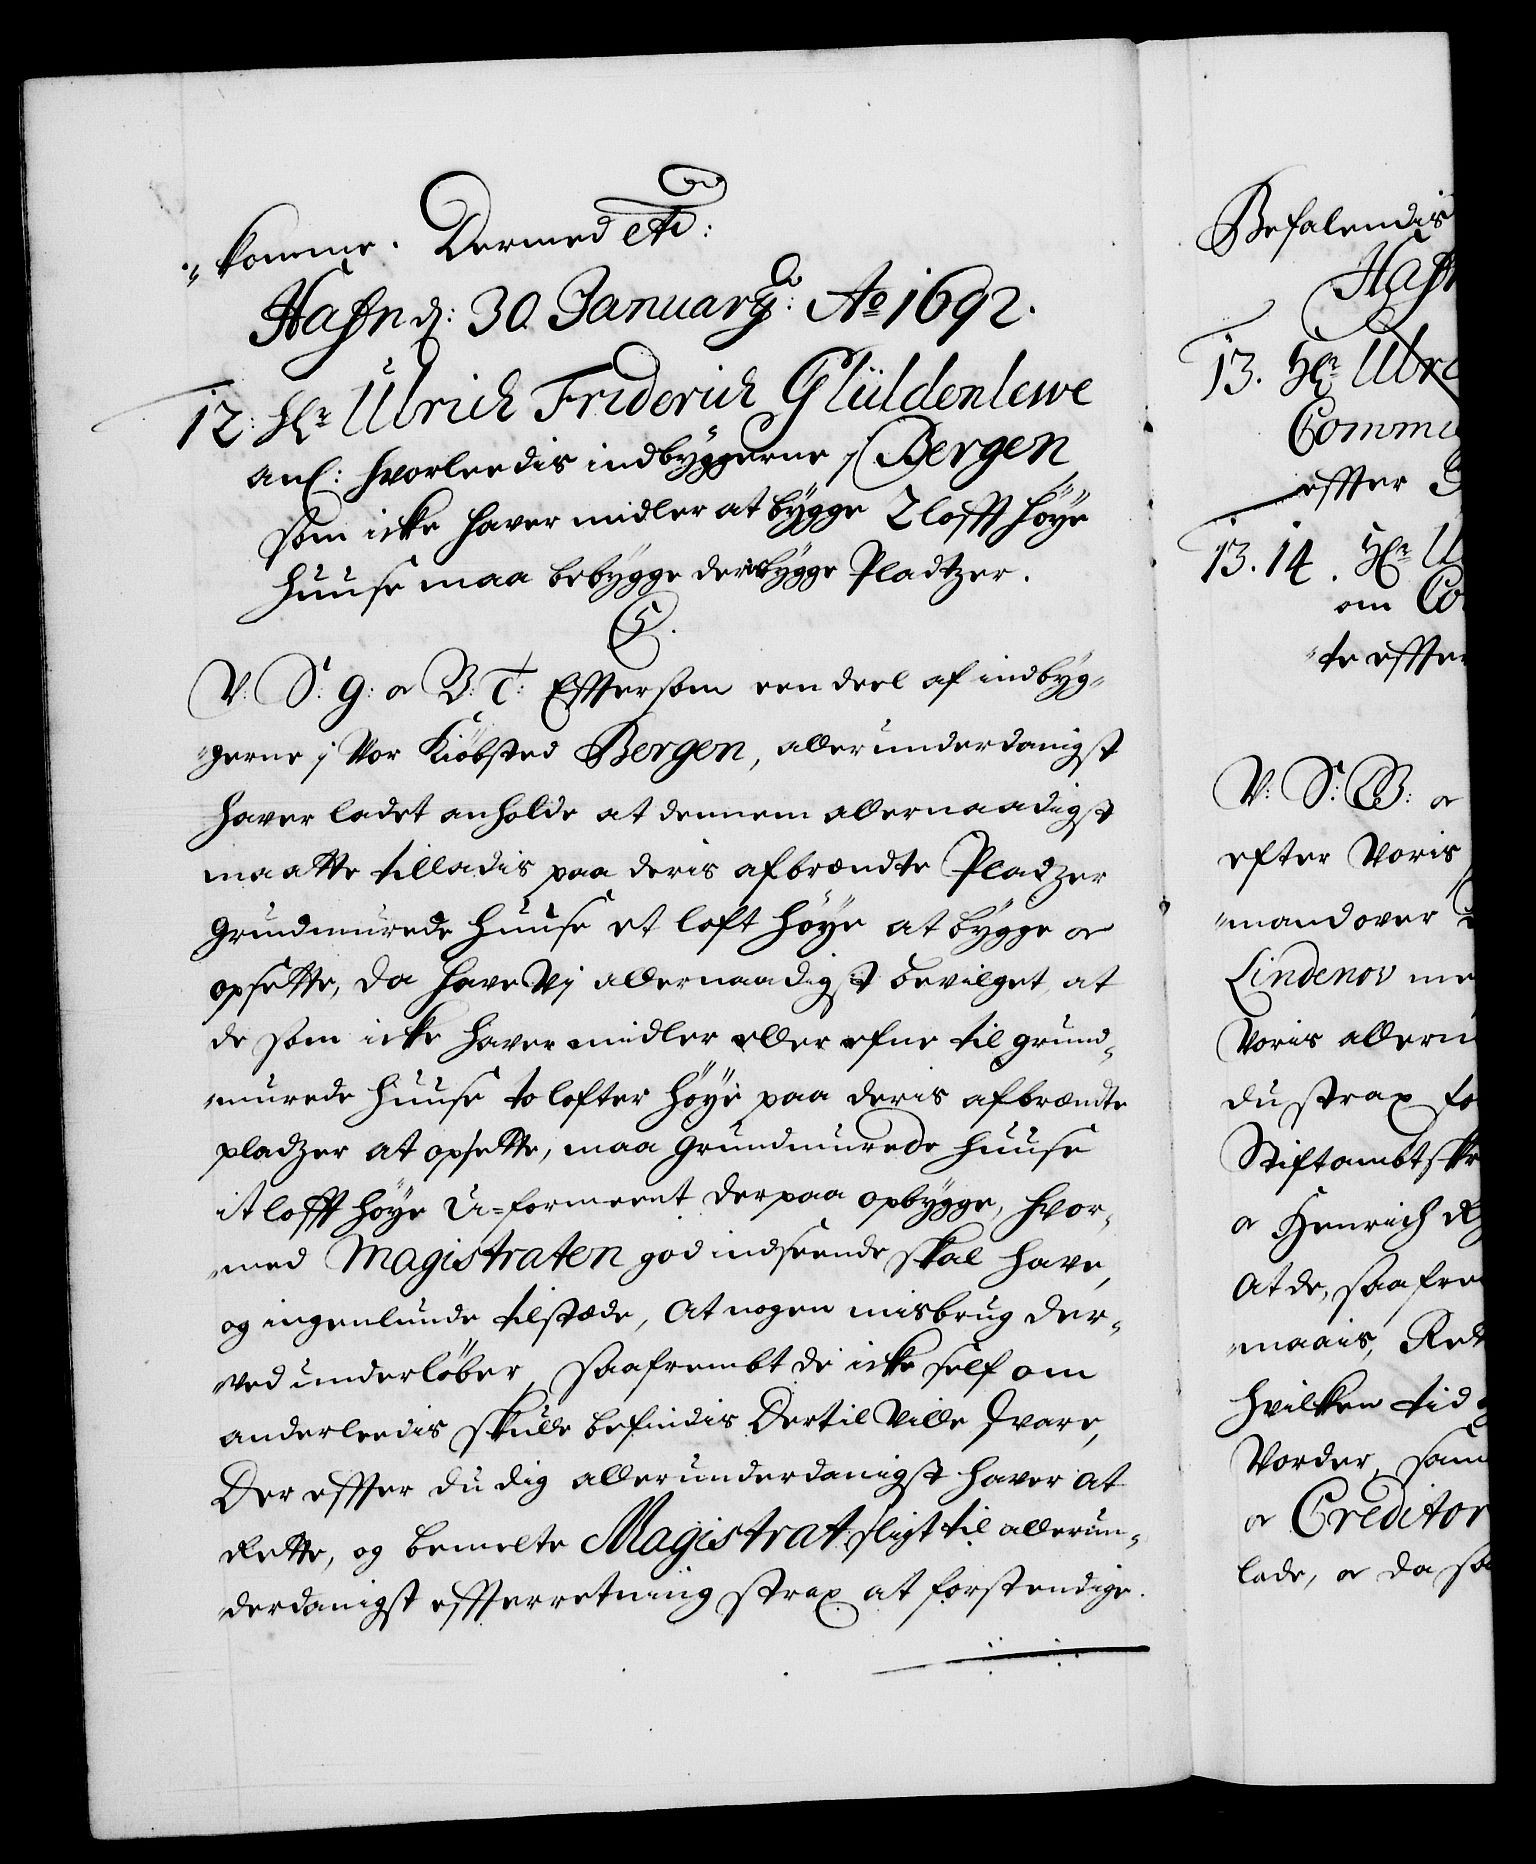 "komme. Dermed etc:
Hafn d: 30. Januarij: Ao 1692.
12. Hr Ulrich Friderich Gÿldenlewe
anl: hvorleedis indbyggerne j Bergen
som icke hafver midler at bygge 2 lofft høye
huuse maa bebygge deris bygge Pladtzer.
C5.
V: S: G: or V: T: Effter som een deel af indbyg-
"gerne j Vor Kiøbsted Bergen, allerunderdanigst
hafver ladet anholde at dennem allernaadigst
maatte tilladis paa deris afbrændte Pladzer
Grundmurede huuse et loft høye at bygge or
opsette, da hafve Vj allernaadigst bevilget, at
de som icke hafver midler eller efne til grund-
"murede huuse to lofter høye paa deris afbrændte
pladzer at opsette, maa Grundmurede huuse
it lofft høye U-formeent derpaa opbygge, hvor-
"med Magistraten god indseende skal hafve,
og ingenlunde tilstæde, at nogen misbrug der-
"ved underløber, saafrembt de icke self om
anderleedis skulle befindis Dertil Ville Svare,
Der effter du dig allerunderdanigst hafver at
Rette, og bemelte Magistrat sligt til allerun-
"derdanigst effterretning strax at forstendige.
Befalendis
Hafn
13. Hr Ulr
Comm
effter
13. 14. Hr U
om Co
"te effter
V: S: G: or
efter Voris
"mand over
Lindenov me
Voris allern
du strax fo
Stiftambtskr
or Henrich
At de, saafre
"maais, Ret
hvilken tid
Vorder, sam
or Creditor
lade, or da sa